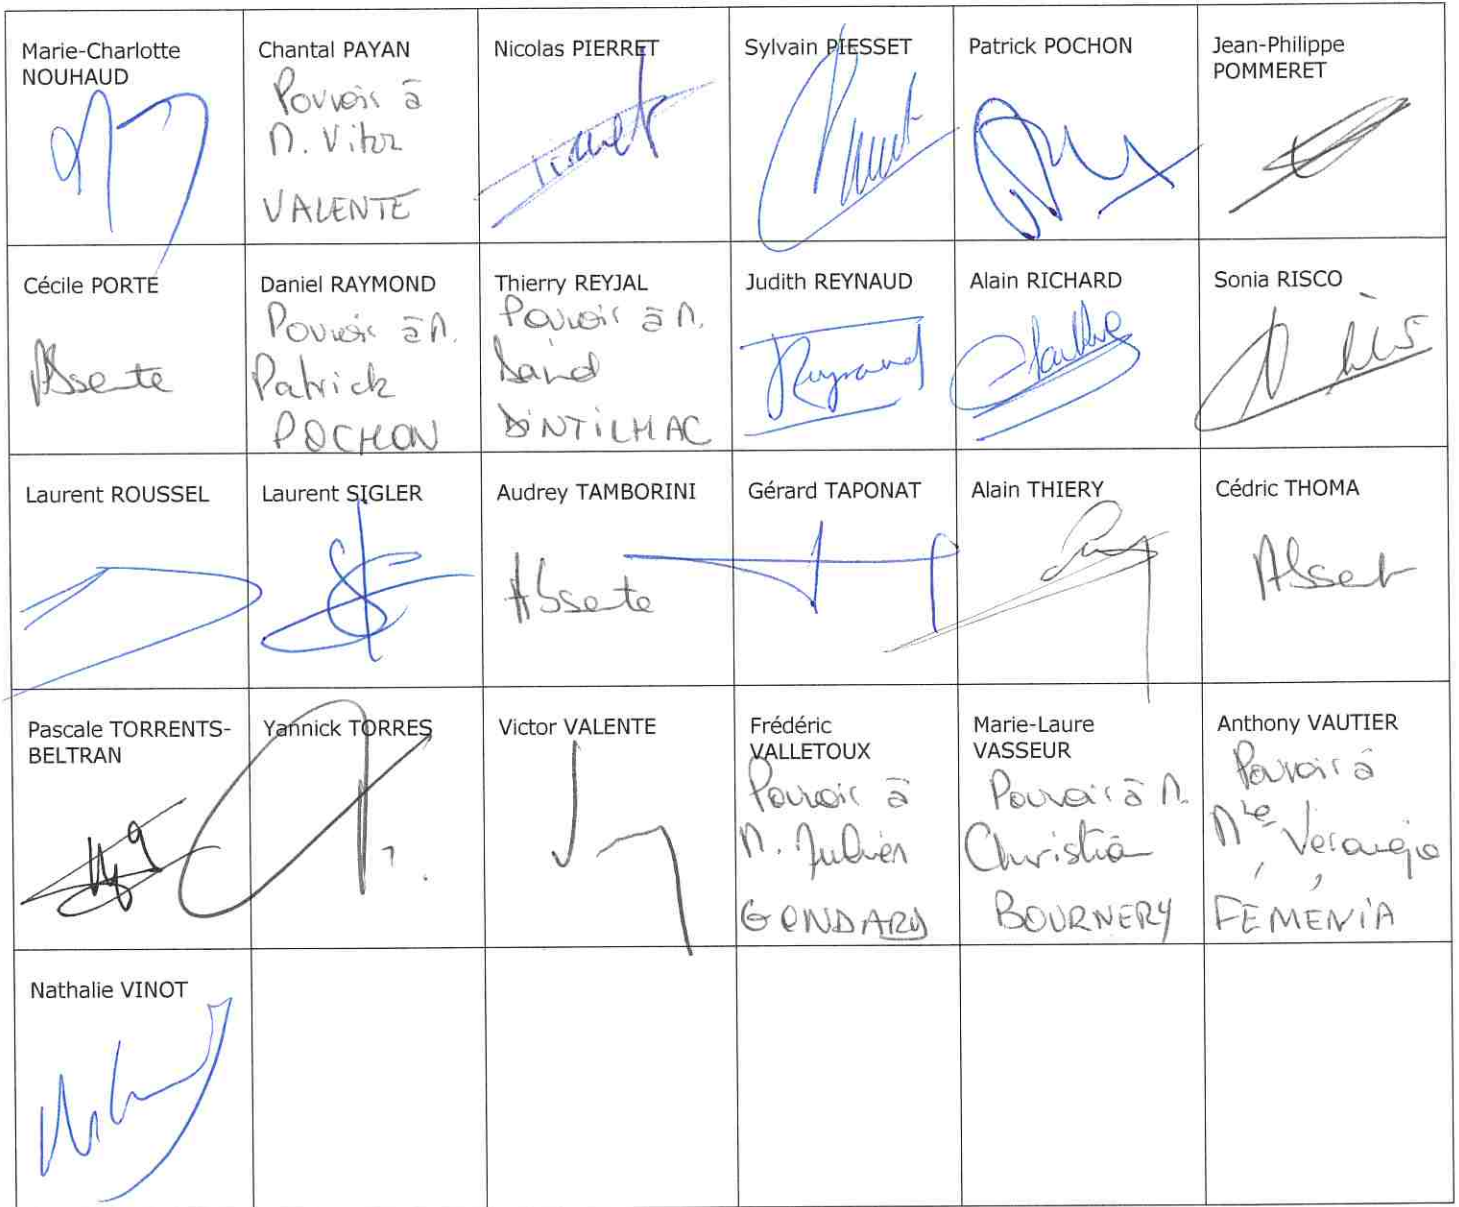 Marie-Charlotte
NOUHAUD
Chantal PAYAN
Pouvoir à
M. Vitor
VALENTE
Nicolas PIERRET
Sylvain PIESSET
Patrick POCHON
Jean-Philippe
POMMERET
Cécile PORTE
Absente
Daniel RAYMOND
Pouvoir à M.
Patrick
POCHON
Thierry REYJAL
Pouvoir à M.
David
DINTILHAC
Judith REYNAUD
Reynaud
Alain RICHARD
Sonia RISCO
Laurent ROUSSEL
Laurent SIGLER
Audrey TAMBORINI
Absente
Gérard TAPONAT
Alain THIERY
Cédric THOMA
Absent
Pascale TORRENTS-
BELTRAN
Yannick TORRES
Victor VALENTE
Frédéric
VALLETOUX
Pouvoir à
M. Julien
GONDARD
Marie-Laure
VASSEUR
Pouvoir à M.
Christian
BOURNERY
Anthony VAUTIER
Pouvoir à
FÉMÉNIA
Nathalie VINOT